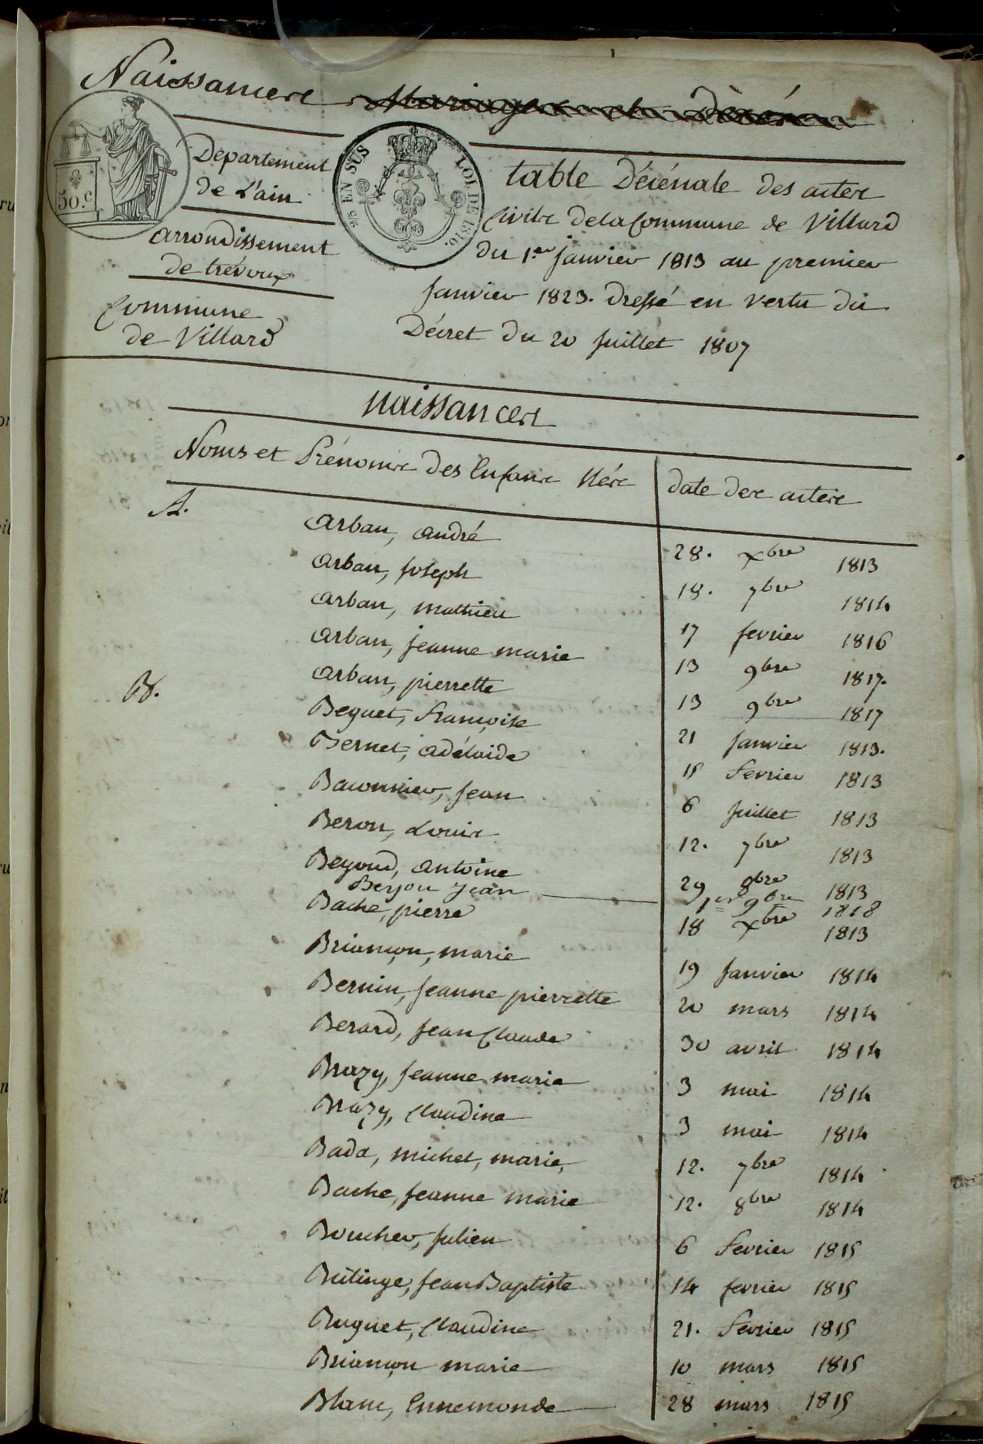 Naissances Mariages et Décès
Département
de L'ain
50.C
25 EN SUS
LOI DE 1816.
arrondissement
de trévoux
Commune
de Villard
table Décénale des actes
Civils de la Commune de Villard
du 1er janvier 1813 au premier
janvier 1823. dressé en vertu du
Décret du 20 juillet 1807
naissances
Noms et Prénoms des Enfans Nés date des actes
A. arban, andré 28. xbre 1813
arban, joseph 18. 7bre 1814
arban, mathieu 17 fevrier 1816
arban, jeanne marie 13 9bre 1817.
arban, pierrette 13 9bre 1817
B. Beguet, françoise 21 janvier 1813.
Bernet, adélaide 15 fevrier 1813
Baconnier, jean 6 juillet 1813
Beron, Louis 12. 7bre 1813
Beyoud, antoine 29 8bre 1813
Beyou jean 1er 9bre 1818
Bache, pierre 18 xbre 1813
Briançon, marie 19 janvier 1814
Bernin, jeanne pierrette 20 mars 1814
Berard, jean Claude 30 avril 1814
Brazy, jeanne marie 3 mai 1814
Brazy, claudine 3 mai 1814
Bada, michel, marie, 12. 7bre 1814
Bache, jeanne marie 12. 8bre 1814
Boucher, julien 6 fevrier 1815
Butinge, jean Baptiste 14 fevrier 1815
Buguet, claudine 21. fevrier 1815
Briançon marie 10 mars 1815
Blanc, Ennemonde 28 mars 1815